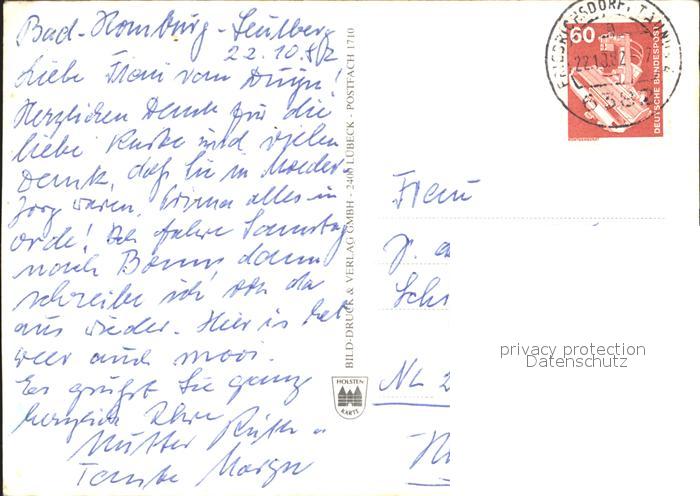 Bad-Homburg-Seulberg
22.10.82
Liebe Frau van Duijn!
Herzlichen Dank für die
liebe Karte und vielen
Dank, daß Sie in Moeder-
zorg waren. Prima alles in
orde! Ich fahre Samstag
nach Bonn, dann
schreibe ich von da
aus wieder. Hier is het
weer auch mooi.
Es grüßt Sie ganz
herzlich Ihre
Mutter Ruth u
Tante
BILD-DRUCK & VERLAG GMBH - 2400 LÜBECK - POSTFACH 1710
HOLSTEN
KARTE
60
DEUTSCHE BUNDESPOST
FRIEDRICHSDORF, TAUNUS
22.10.82
6382
Frau
J.
Sch
NL 2
privacy protection
Datenschutz